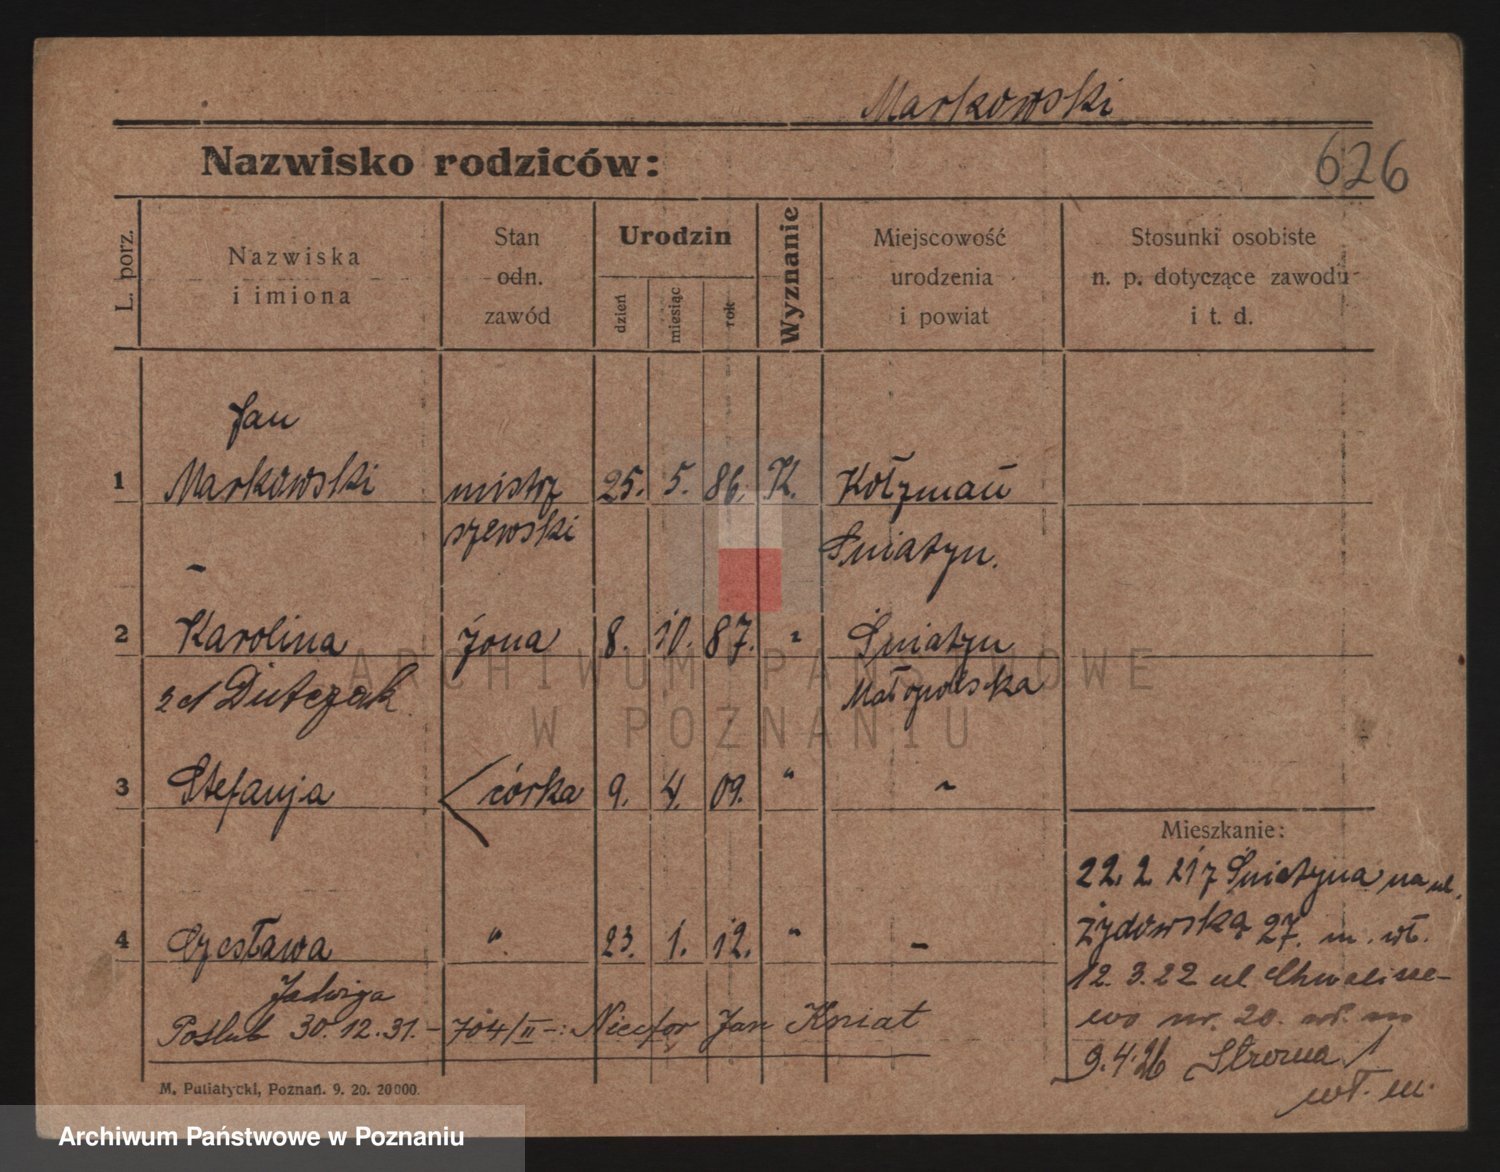 Markowski
Nazwisko rodziców:
626
L. porz.
Nazwiska
i imiona
Stan
odn.
zawód
Urodzin
dzień
miesiąc
rok
Wyznanie
Miejscowość
urodzenia
i powiat
Stosunki osobiste
n. p. dotyczące zawodu
i t. d.
Jan
1 Markowski mistrz 25. 5. 86. K.
szewski Śniatyn.
2 Karolina żona 8. 10. 87. " Śniatyn
Dutczak Małopolska
3 Stefanja córka 9. 4. 09. " "
Mieszkanie:
22. 2 21 z Śniatyna na ul.
Żydowską 27. m. wł.
4 Czesława ". 23. 1. 12. " "
Jadwiga
12. 3. 22 ul Chwalisze-
wo nr. 20. wł. m
Poślub 30.12.31.- 704/II-: Nicefor Jan Kniat
9.4.26 Stroma 1
wł. m.
M. Putiatycki, Poznań. 9. 20. 20000.
ARCHIWUM PAŃSTWOWE
W POZNANIU
Archiwum Państwowe w Poznaniu